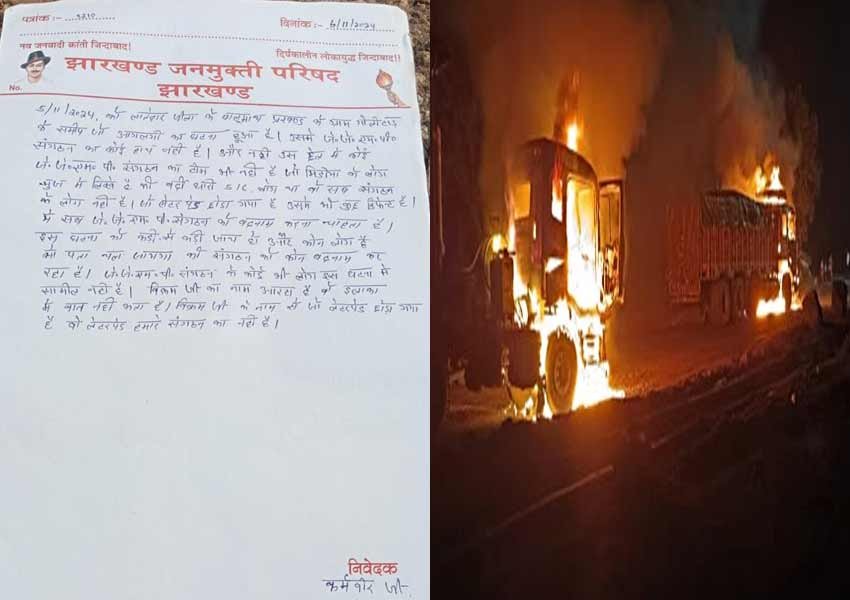 पत्रांक:-
दिनांक:- 6/11/2024
नव जनवादी क्रांती जिन्दाबाद!
दिर्घकालीन लोकयुद्ध जिन्दाबाद!!
झारखण्ड जनमुक्ती परिषद
No.
झारखण्ड
5/11/2024, को लातेहार जीला के बालुमाथ प्रखण्ड के ग्राम
के समीप जो आगलगी का घटना हुआ है। इसमे जे.जे.एम.पी.
संगठन का कोई हाथ नहीं है। और नही उस क्षेत्र में कोई
जे.जे.एम.पी. संगठन का टीम भी नहीं है जो मिडीया के लोग
न्युज में लिखे है की वही वाले लोग था वे सब संगठन
के लोग नहीं है। जो लेटर पेड छोडा गया है उसमे भी है।
ये सब जे.जे.एम.पी. संगठन को बदनाम करना चाहता है।
इस घटना की कडी-से कडी जांच हो और कौन लोग है
पता चल जायगा की संगठन को कौन बदनाम कर
रहा है। जे.जे.एम.पी. संगठन के कोई भी लोग इस घटना मे
सामील नहीं है। विक्रम जी का नाम आरहा है वो इलाका
में काम नहीं करता है। विक्रम जी के नाम से जो लेटरपेड छोडा गया
है वो लेटरपेड हमारे संगठन का नहीं है।
निवेदक
कर्मवीर जी